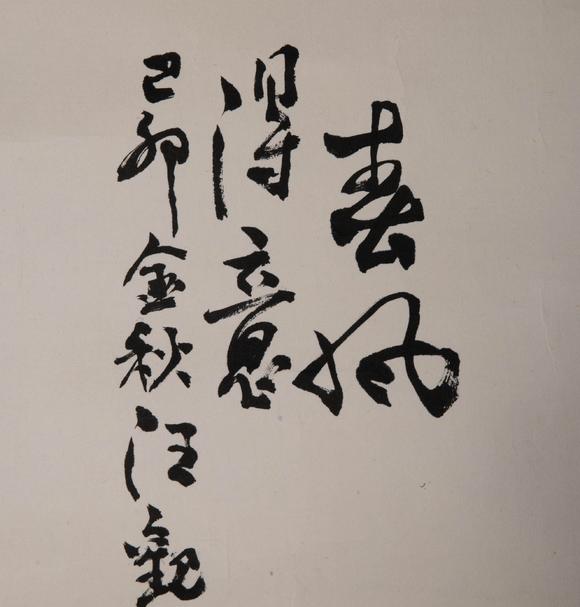 春风
得意
己卯金秋汪观